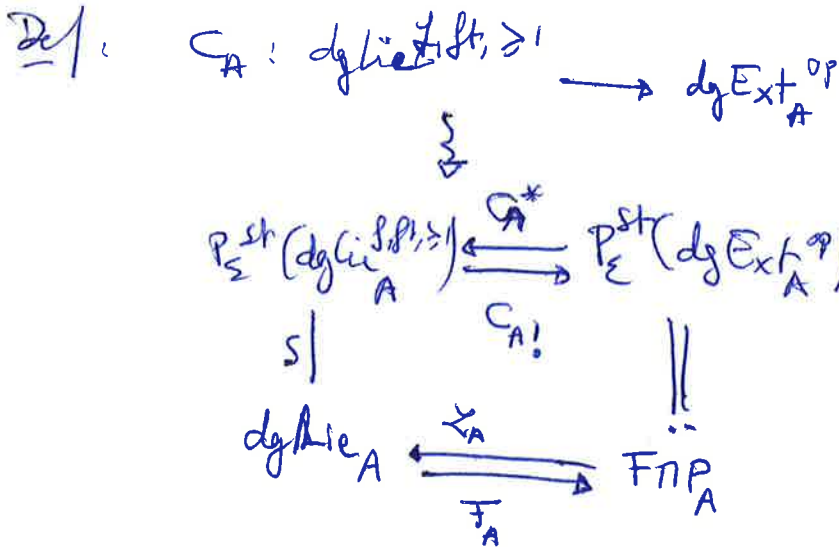 Def: C_A : dgLie_A^{f, ft, ≥1} ⟶ dgExt_A^{op}
P_Σ^{st}(dgLie_A^{f, ft, ≥1}) ⇄ P_Σ^{st}(dgExt_A^{op})
C_A^*
C_{A!}
S| ||
dgLie_A ⇄ FMP_A
F_A